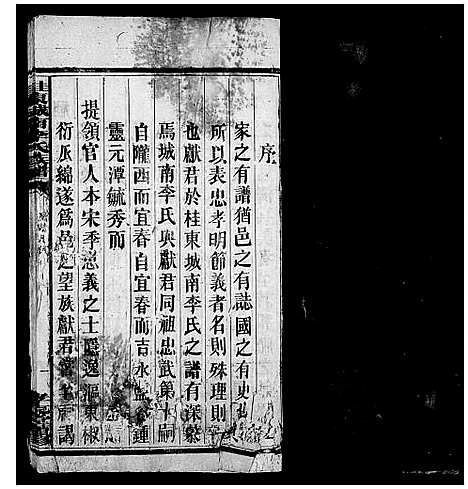 序
家之有譜猶邑之有誌國之有史
所以表忠孝明節義者名則殊理則
也獻君於桂東城南李氏之譜有深
焉城南李氏與獻君同祖忠武第十嗣
自隴西而宜春自宜春而吉永
靈元潭毓秀而
提領官人本宋季忠義之士隱逸漚東椒
衍瓜綿遂為邑之望族獻君